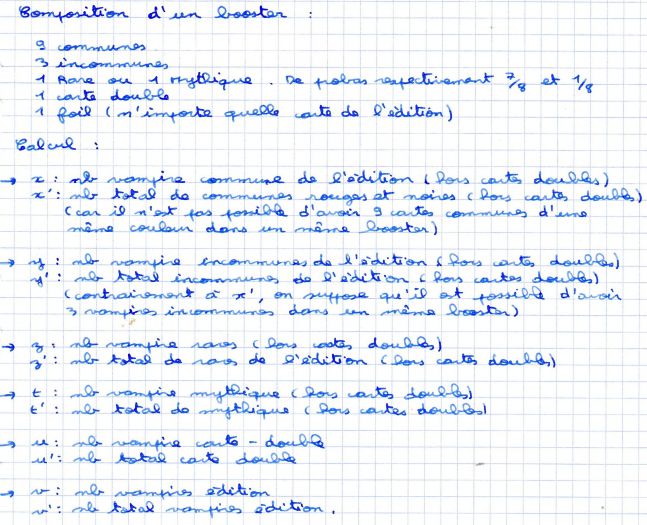 Composition d'un booster :
9 communes
3 incommunes
1 Rare ou 1 Mythique. De probas respectivement 7/8 et 1/8
1 carte double
1 foil (n'importe quelle carte de l'édition)
Calcul :
→ x : nb vampire commune de l'édition (hors cartes doubles)
x' : nb total de communes rouges et noires (hors cartes doubles)
(car il n'est pas possible d'avoir 9 cartes communes d'une
même couleur dans un même booster)
→ y : nb vampire incommunes de l'édition (hors cartes doubles)
y' : nb total incommunes de l'édition (hors cartes doubles)
(contrairement à x', on suppose qu'il est possible d'avoir
3 vampires incommunes dans un même booster)
→ z : nb vampire rares (hors cartes doubles)
z' : nb total de rares de l'édition (hors cartes doubles)
→ t : nb vampire mythique (hors cartes doubles)
t' : nb total de mythique (hors cartes doubles)
→ u : nb vampire carte-double
u' : nb total carte double
→ v : nb vampires édition
v' : nb total vampires édition.